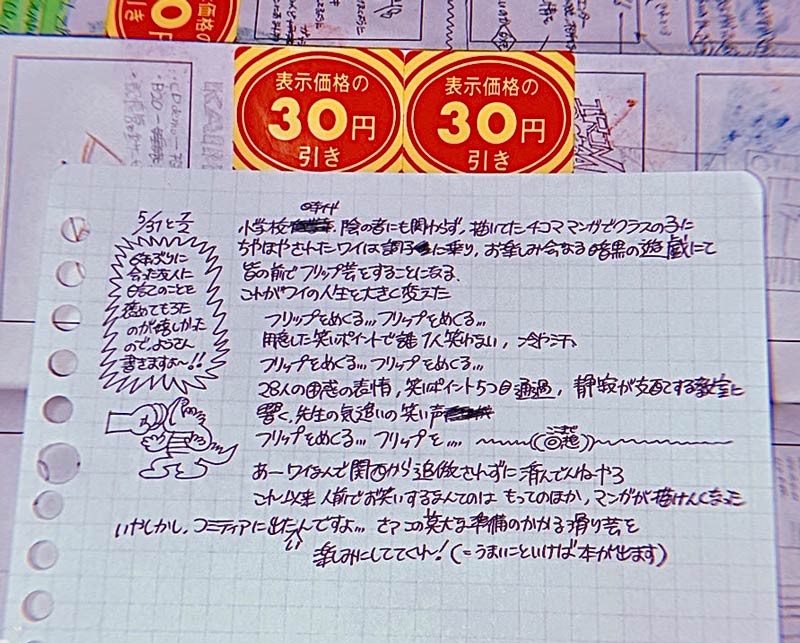 表示価格の
30円
引き
表示価格の
30円
引き
5/31と7/2
6年ぶりに
会った友人に
日記のことを
褒めてもろた
のが嬉しかった
ので、ようさん
書きますよ〜!!
時代
小学校 陰の者にも関わらず、描いてた4コママンガでクラスの子に
ちやほやされたワイは調子に乗り、お楽しみ会なる暗黒の遊戯にて
皆の前でフリップ芸をすることになる、
これがワイの人生を大きく変えた
フリップをめくる… フリップをめくる…
用意した笑いポイントで誰1人笑わない、冷や汗
フリップをめくる… フリップをめくる…
28人の困惑の表情、笑いポイント5つ目通過、静寂が支配する教室に
響く、先生の気遣いの笑い声
フリップをめくる… フリップを…
回想
あーワイなんで関西から追放されずに済んでんねやろ
これ以来人前でお笑いするなんてのはもってのほか、マンガが描けんくなった
いやしかし、コミティアに出たいんですよ… さァこの莫大な準備のかかる滑り芸を
楽しみにしててくれ〜!(=うまいこといけば本が出ます)